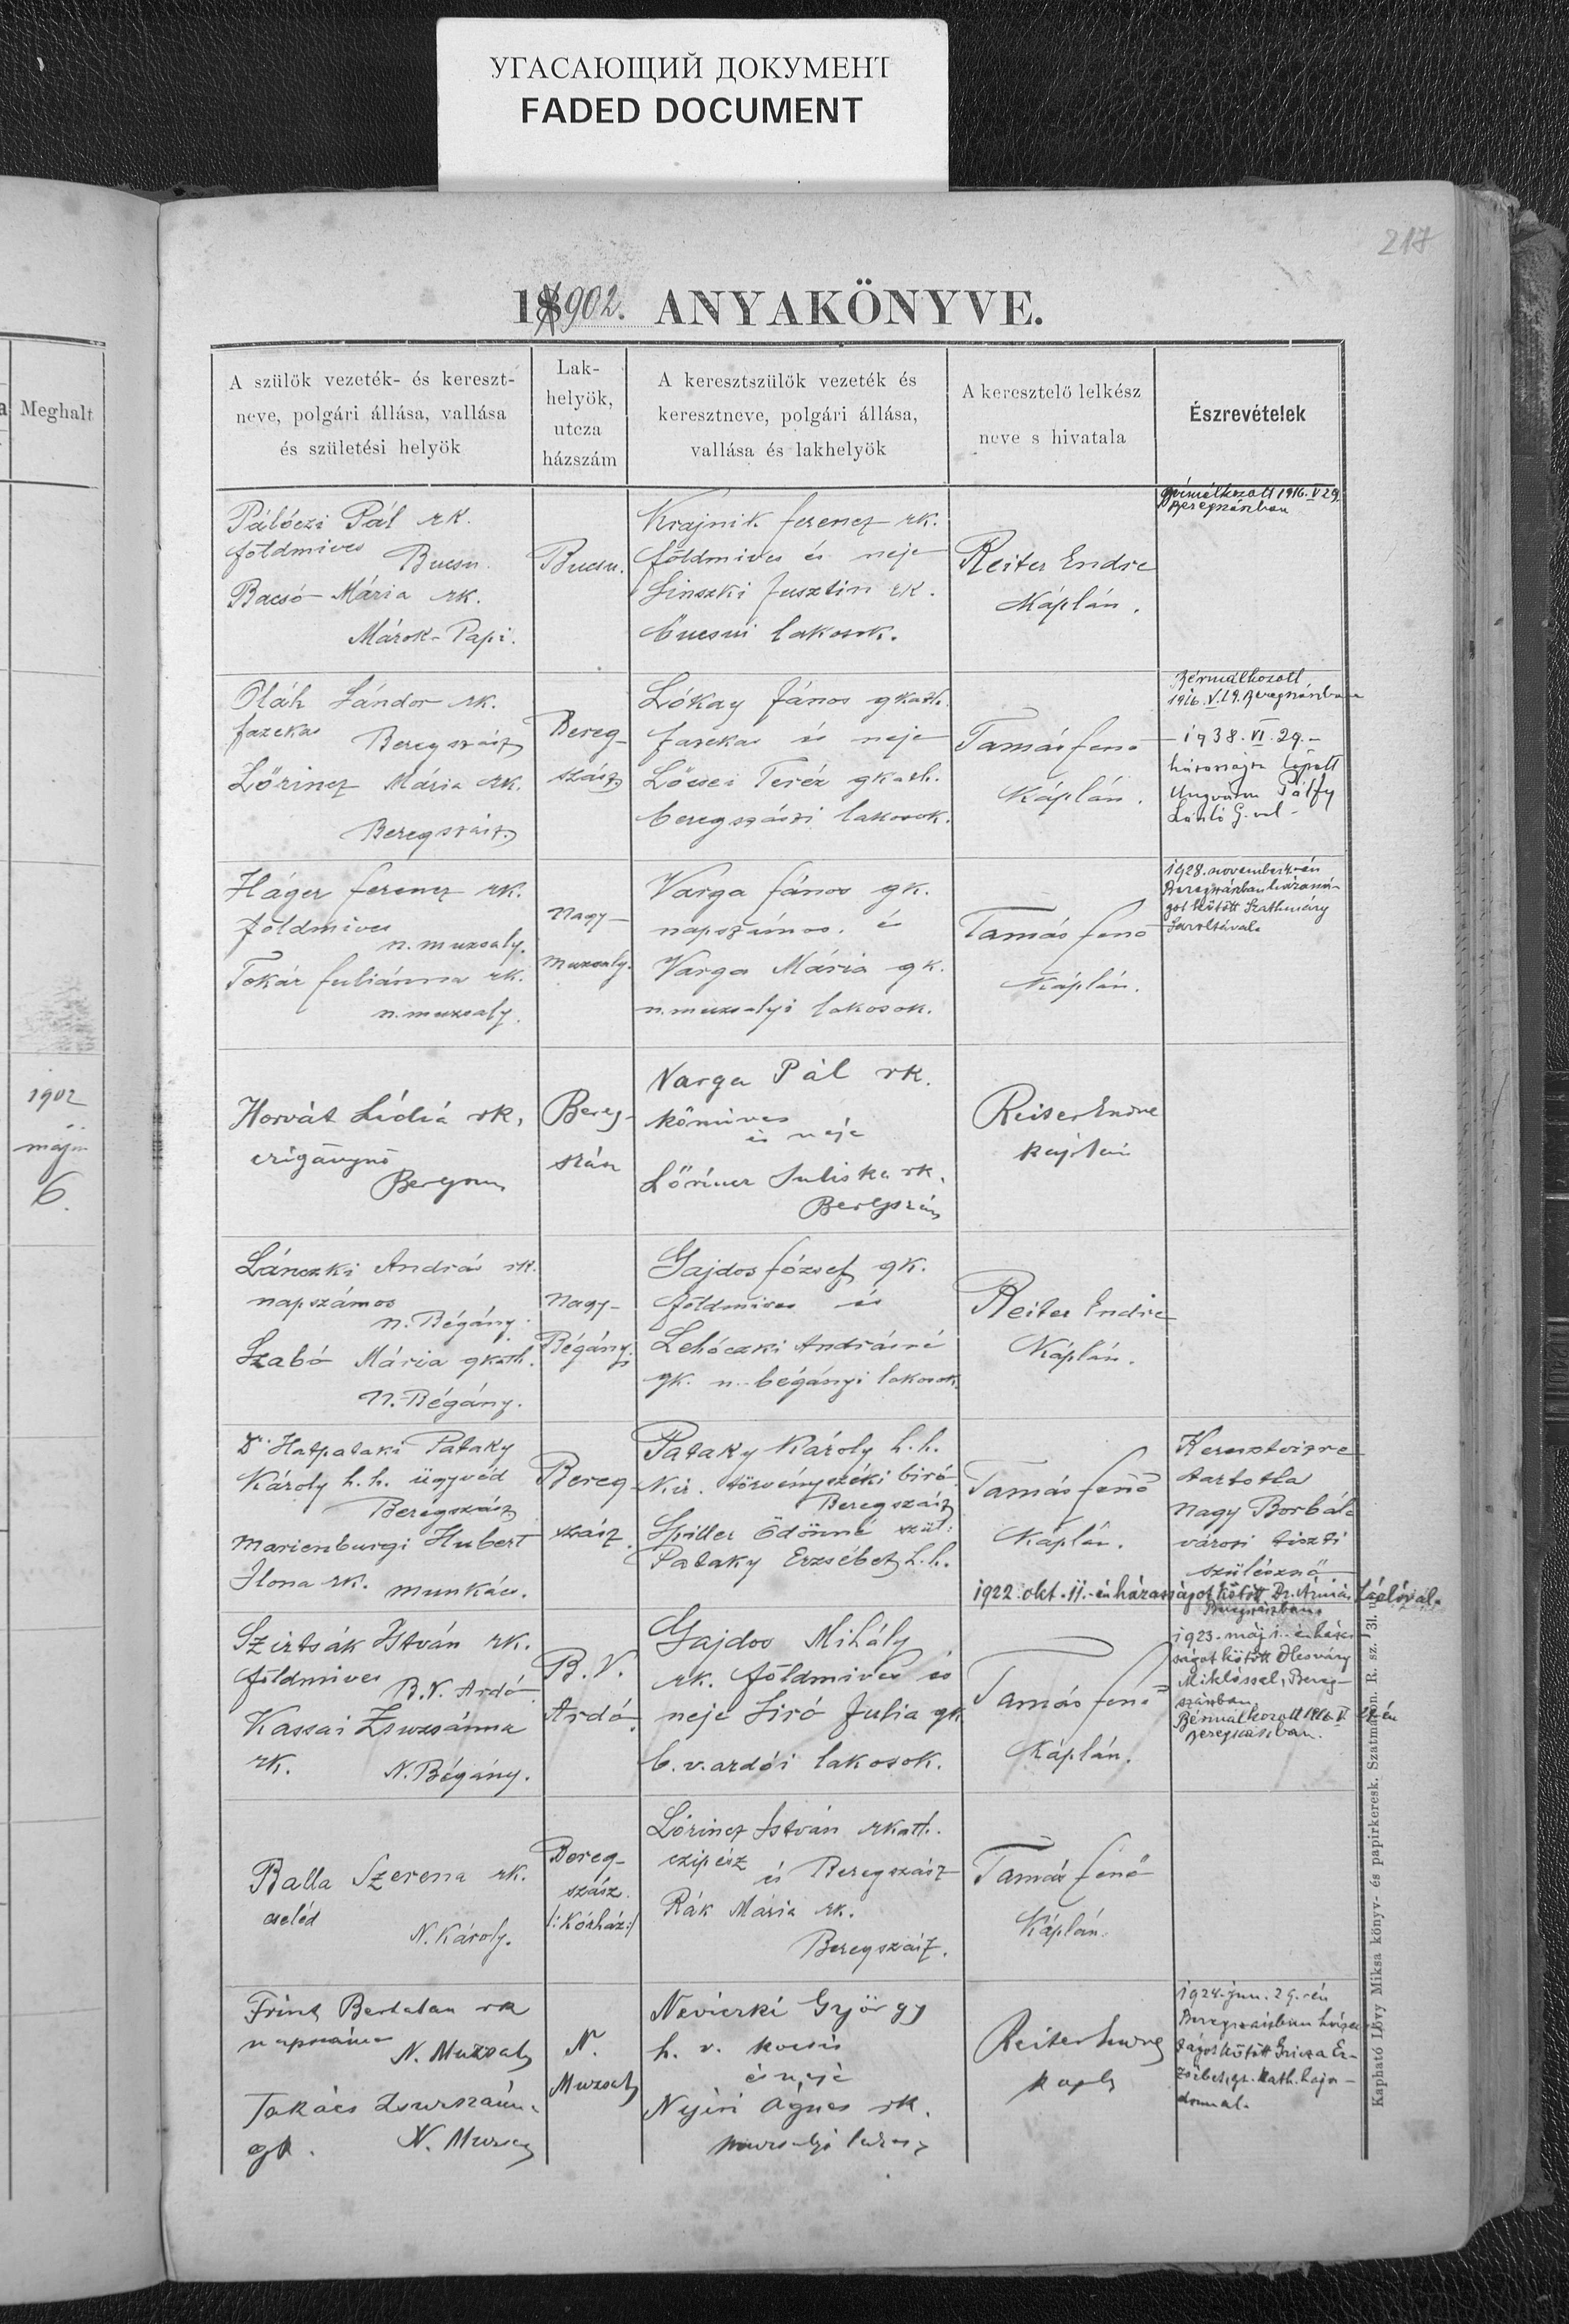 УГАСАЮЩИЙ ДОКУМЕНТ
FADED DOCUMENT
217
1902. ANYAKÖNYVE.
Meghalt
A szülök vezeték- és kereszt-
neve, polgári állása, vallása
és születési helyök
Lak-
helyök,
utcza
házszám
A keresztszülök vezeték és
keresztneve, polgári állása,
vallása és lakhelyök
A keresztelö lelkész
neve s hivatala
Észrevételek
Pálóczi Pál rk.
földmives
Bucsu.
Bacsó Mária rk.
Márok-Papi.
Bucsu.
Krajnik ferencz rk.
földmives és neje
Sinszki Jusztin rk.
bucsui lakosok.
Reiter Endre
Káplán.
Bérmálkozott 1916. V 29.
Beregszászban
Oláh Sándor rk.
fazekas
Beregszász
Lőrincz Mária rk.
Beregszász
Bereg-
szász
Lókay János gkath.
fazekas és neje
Lőcsei Teréz gkath.
beregszászi lakosok.
Tamás Jenő
Káplán.
Bérmálkozott
1916. V. 29. Beregszászban
- 1938. VI. 29. -
házasságra lépett
Ungváron Pálfy
László G. vel -
Háger ferencz rk.
földmives
n. muzsaly.
Tokár Juliánna rk.
n. muzsaly.
Nagy-
muzsaly.
Varga János gk.
napszámos. és
Varga Mária gk.
n. muzsalyi lakosok.
Tamás Jenő
Káplán.
1928. november 4-én
Beregszászban házassá-
got kötött Szathmáry
Saroltával.
1902
máju
6.
Horvát Lídiá rk,
czigánynő
Bereg-
szász
Varga Pál rk.
kőmives
és neje
Lőrincz Juliska rk.
Beregszász
Reiter Endre
káplán
Lánczki András rk.
napszámos
n. Bégány.
Szabó Mária gkath.
N. Bégány.
Nagy-
Bégány.
Gajdos József gk.
földmives és
Lehóczki Andrásné
gk. n. bégányi lakosok.
Reiter Endre
Káplán.
Dr. Hatpataki Pataky
Károly h. h. ügyvéd
Beregszász
Marienburgi Hubert
Ilona rk. Munkács.
Bereg-
szász.
Pataky Károly h. h.
Kir. törvényszéki biró
Beregszász
Spiller Ödönné szül:
Pataky Erzsébet h. h.
Tamás Jenő
Káplán.
Keresztvizre
tartotta
Nagy Borbála
városi tiszti
szülésznő
1922. okt. 11.-én házasságot kötött Dr. Lászlóval.
Beregszászban.
Szirtsák István rk.
földmives
B. V. Ardó
Kassai Zsuzsánna
rk.
N. Bégány.
B. V.
Ardó.
Gajdos Mihály
rk. földmives és
neje Siró Julia gk
b. v. ardói lakosok.
Tamás Jenő
Káplán.
1923. máj 1.-én házas-
ságot kötött Olesváry
Miklóssal, Bereg-
szászban.
Bérmálkozott 1916. V. 29-én
Beregszászban.
Balla Szerena rk.
cseléd
N. Károly.
Bereg-
szász.
/: Kórház :/
Lőrincz István rkath.
czipész
és Beregszász
Rák Mária rk.
Beregszász.
Tamás Jenő
Káplán.
Frint Bertalan rk
napszámos
N. Muzsaly
Takács Zsuzsánna
gk. N. Muzsaly
N.
Muzsaly
Neviczki György
h. v. kocsis
és neje
Nyiri Ágnes rk.
Reiter Endre
kapl
1924. jun. 29.-én
Beregszászban házas-
ságot kötött Er-
zsébet, gk. kath. haja-
donnal.
Kapható Lévy Miksa könyv- és papirkeresk. Szatmáron. R. sz. / 31.